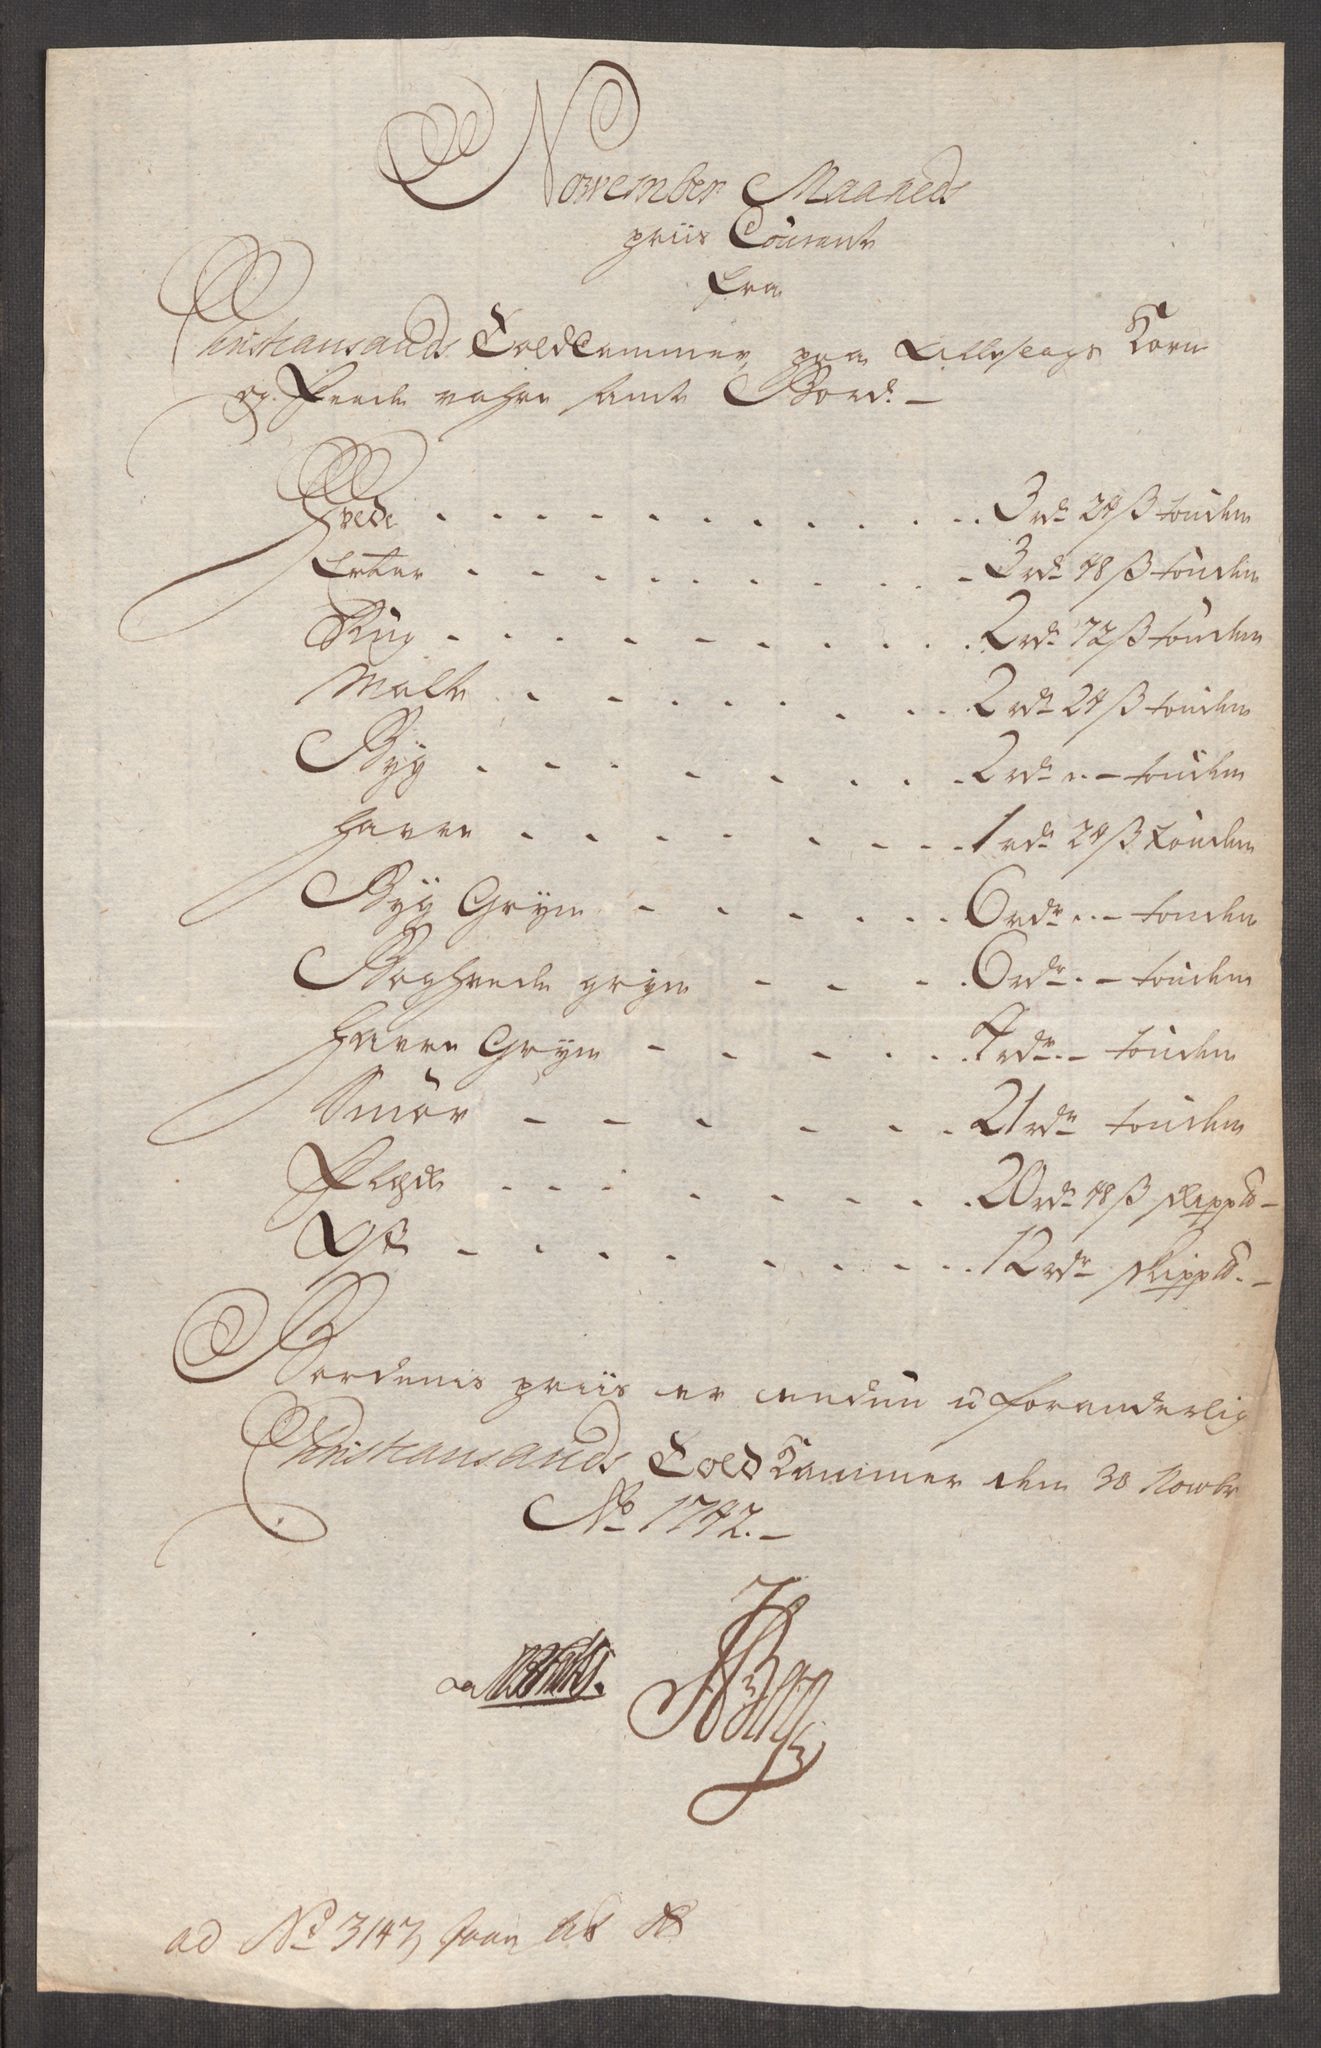 November Maaneds
priis Courant
fra
Christiansands Toldkammer, paa Korn
og Feede vahre samt Bord. –
Hvede . . . 3 rdr 24 ß tønden
Erter . . . 3 rdr 48 ß tønden
Rug . . . 2 rdr 72 ß tønden
Malt . . . 2 rdr 24 ß tønden
Byg . . . 2 rdr . – tønden
Havre . . . 1 rdr 24 ß tønden
Byg Gryn . . . 6 rdr . – tønden
Boghvede gryn . . . 6 rdr . – tønden
Havre Gryn . . . 4 rdr . – tønden
Smør . . . 21 rdr tønden
Flesk . . . 20 rdr 48 ß skippd –
Ost . . . 12 rdr skippd. –
Bordenis priis er endnu uforanderlig
Christiansands Toldkammer den 30 Novbr
Ao 1742. –
ad No 3147